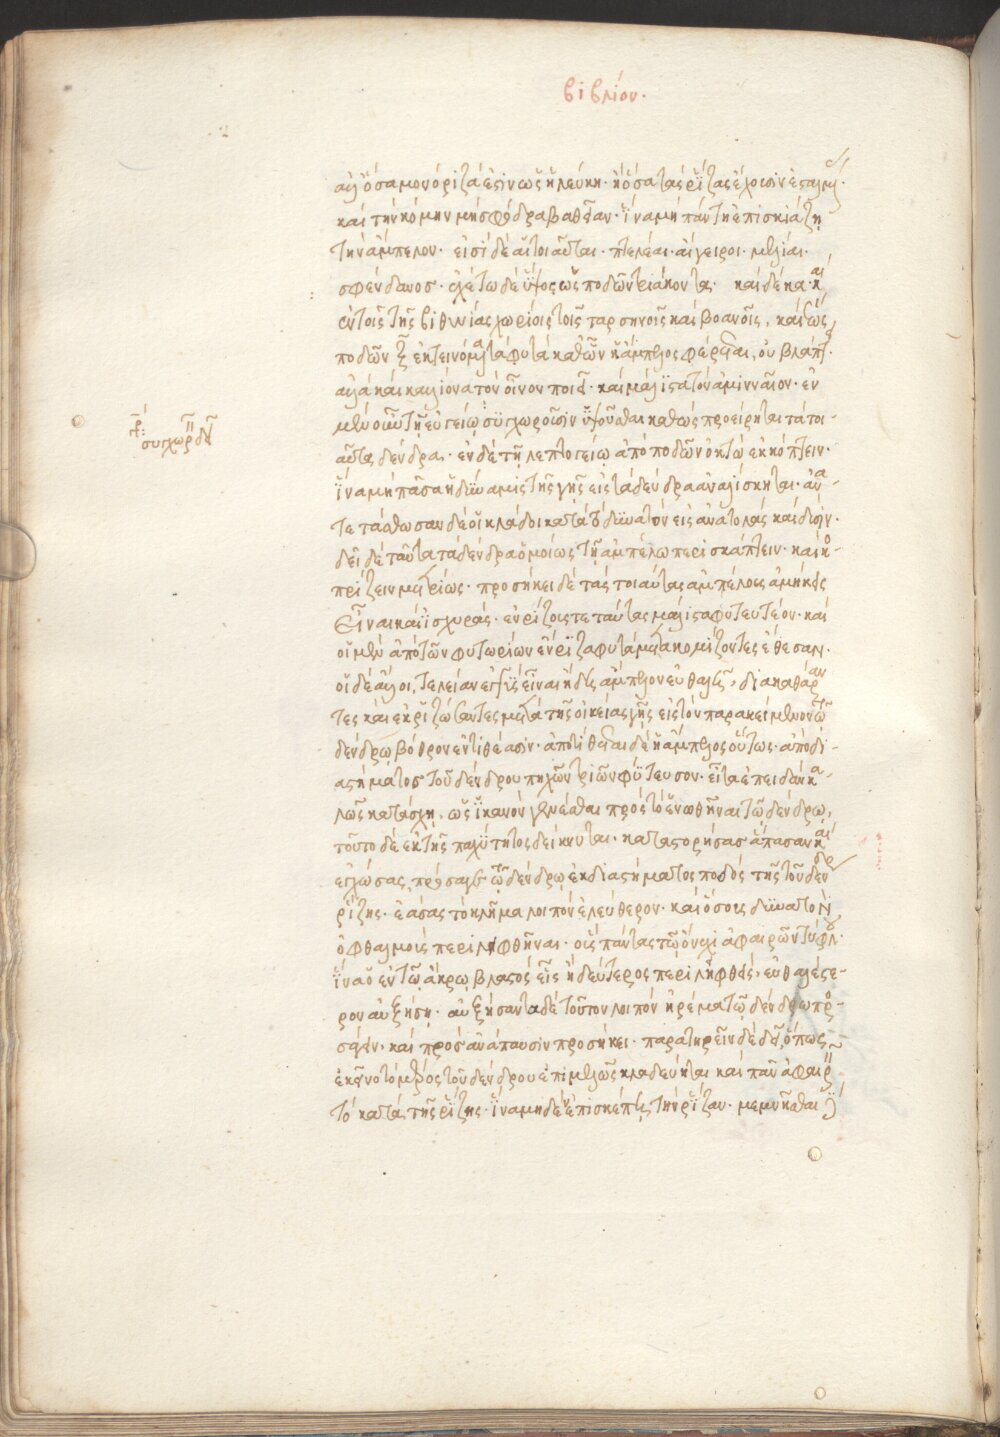 βιβλίον.
ἀλλ' ὅσα μονόριζά ἐστιν ὡς ἡ λεύκη. ἢ ὅσα τὰς ῥίζας ἔχουσιν ἐσταλμ.
καὶ τὴν κόμην μὴ σφόδρα βαθεῖαν. ἵνα μὴ πάντη ἐπισκιάζη
τὴν ἄμπελον. εἰσὶ δὲ αἱ τοιαῦται. πτελέαι. αἴγειροι. μελίαι.
σφένδανος. ἐχέτω δὲ ὕψος ὡς ποδῶν τριάκοντα. καὶ δέκα. καὶ
ἐν τοῖς τῆς βιθυνίας χωρίοις τοῖς ταρσηνοῖς καὶ βοανοῖς, καὶ ἕως
ποδῶν ξ ἐκτεινόμενα τὰ φυτὰ καθ' ὧν ἡ ἄμπελος φέρεται, οὐ βλάπτ.
ἀλλὰ καὶ καλλίονα τὸν οἶνον ποιεῖ. καὶ μάλιστα τὸν ἀμινναῖον. ἐν
μὲν οὖν τῇ εὐγείῳ συγχωροῦσιν ὑψοῦσθαι καθὼς προείρηται τὰ τοι-
αῦτα δένδρα. ἐν δὲ τῇ λεπτογείῳ ἀπὸ ποδῶν ὀκτὼ ἐκκόπτειν.
ἵνα μὴ πᾶσα ἡ δύναμις τῆς γῆς εἰς τὰ δένδρα ἀναλίσκηται. ἀνα-
τετάσθωσαν δὲ οἱ κλάδοι κατὰ τὸ δυνατὸν εἰς ἀνατολὰς καὶ δύσιν.
δεῖ δὲ ταῦτα τὰ δένδρα ὁμοίως τῇ ἀμπέλω περισκάπτειν. καὶ κο-
πρίζειν μετρίως. προσήκει δὲ τὰς τοιαύτας ἀμπέλους εὐμήκεις
εἶναι καὶ ἰσχυράς. ἐνρίζοις τε ταύτας μάλιστα φυτευτέον. καὶ
οἱ μὲν ἀπὸ τῶν φυτωρίων ἔνριζα φυτὰ μετακομίζοντες ἔθεσαν.
οἱ δὲ ἄλλοι, τελείαν ἐγγὺς εἶναι ἤδη ἄμπελον εὐθαλῆ, διακαθάραν
τες καὶ ἐκριζώσαντες μετὰ τῆς οἰκείας γῆς εἰς τὸν παρακείμενον τῷ
δένδρω βόθρον ἐντιθέασιν. ἀποτίθεται δὲ ἡ ἄμπελος οὕτως. ἀπὸ δι-
αστήματος τοῦ δένδρου πηχῶν τριῶν φύτευσον. εἶτα ἐπειδὰν κα-
λῶς κατάσχη, ὡς ἱκανὸν γενέσθαι πρὸς τὸ ἑνωθῆναι τῷ δένδρω,
τοῦτο δὲ ἐκ τῆς παχύτητος δείκνυται. καταστορήσας ἅπασαν καὶ
ἐγχώσας, πρόσαγε τῷ δένδρῳ ἐκ διαστήματος ποδὸς τῆς τοῦ δένδρ
ῥίζης. ἐάσας τὸ κλῆμα λοιπὸν ἐλεύθερον. καὶ ὅσους δυνατὸν
ὀφθαλμοὺς περιληφθῆναι. οὓς πάντας τῷ ὄνυχι ἀφαιρῶν τύφλ.
ἵνα ὁ ἐν τῷ ἄκρῳ βλαστὸς εἷς ἢ δεύτερος περιληφθεὶς, εὐθαλέστε-
ρον αὐξήση. αὐξήσαντα δὲ τοῦτον λοιπὸν ἠρέμα τῷ δένδρω προ-
σάγειν. καὶ πρὸς ἀνάπαυσιν προσήκει. παρατηρεῖν δὲ δεῖ, ὅπως
ἐκεῖνο τὸ μέρος τοῦ δένδρου ἐπιμελῶς κλαδεύηται καὶ πᾶν ἀφαιρῆ
τὸ κατὰ τῆς ῥίζης. ἵνα μηδὲν ἐπισκέπῃ τὴν ῥίζαν. μεμνῆσθαι
γρ:
συγχωρεῖν